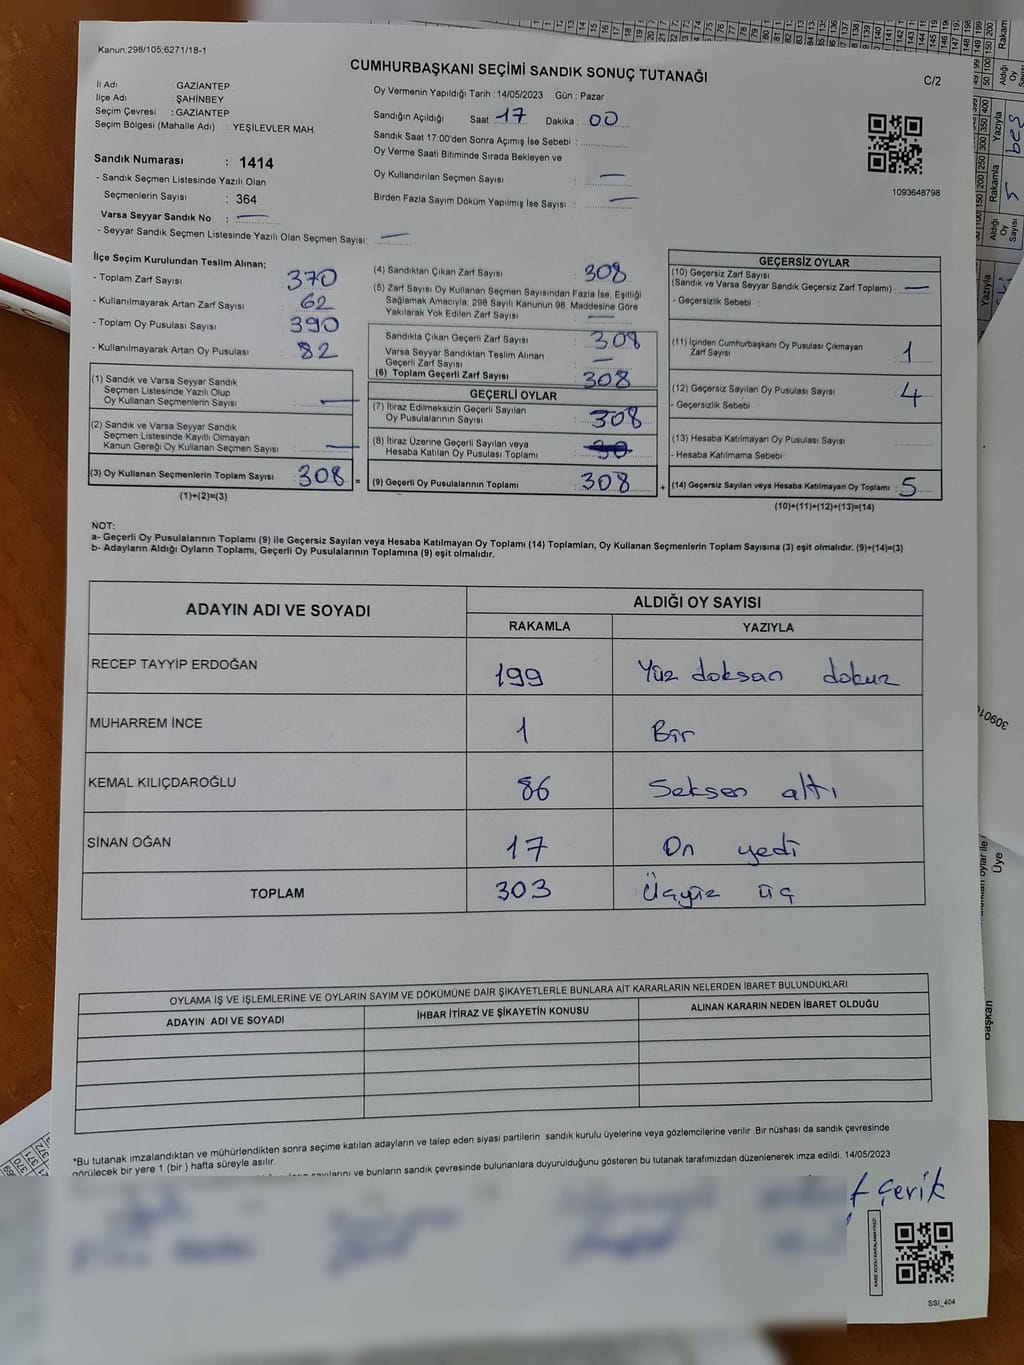 Kanun:298/105;6271/18-1
CUMHURBAŞKANI SEÇİMİ SANDIK SONUÇ TUTANAĞI
C/2
İl Adı : GAZİANTEP
İlçe Adı : ŞAHİNBEY
Seçim Çevresi : GAZİANTEP
Seçim Bölgesi (Mahalle Adı) : YEŞİLEVLER MAH.
Sandık Numarası : 1414
- Sandık Seçmen Listesinde Yazılı Olan
Seçmenlerin Sayısı : 364
Varsa Seyyar Sandık No : —
- Seyyar Sandık Seçmen Listesinde Yazılı Olan Seçmen Sayısı: —
Oy Vermenin Yapıldığı Tarih :14/05/2023 Gün : Pazar
Sandığın Açıldığı Saat : 17 Dakika : 00
Sandık Saat 17:00'den Sonra Açımış İse Sebebi :
Oy Verme Saati Bitiminde Sırada Bekleyen ve
Oy Kullandırılan Seçmen Sayısı : —
Birden Fazla Sayım Döküm Yapılmış İse Sayısı : —
1093648798
İlçe Seçim Kurulundan Teslim Alınan;
- Toplam Zarf Sayısı : 370
- Kullanılmayarak Artan Zarf Sayısı : 62
- Toplam Oy Pusulası Sayısı : 390
- Kullanılmayarak Artan Oy Pusulası : 82
(1) Sandık ve Varsa Seyyar Sandık
Seçmen Listesinde Yazılı Olup
Oy Kullanan Seçmenlerin Sayısı : —
(2) Sandık ve Varsa Seyyar Sandık
Seçmen Listesinde Kayıtlı Olmayan
Kanun Gereği Oy Kullanan Seçmen Sayısı : —
(3) Oy Kullanan Seçmenlerin Toplam Sayısı : 308 =
(1)+(2)=(3)
(4) Sandıktan Çıkan Zarf Sayısı : 308
(5) Zarf Sayısı Oy Kullanan Seçmen Sayısından Fazla İse, Eşitliği
Sağlamak Amacıyla, 298 Sayılı Kanunun 98. Maddesine Göre
Yakılarak Yok Edilen Zarf Sayısı : —
Sandıkta Çıkan Geçerli Zarf Sayısı : 308
Varsa Seyyar Sandıktan Teslim Alınan
Geçerli Zarf Sayısı : —
(6) Toplam Geçerli Zarf Sayısı : 308
GEÇERLİ OYLAR
(7) İtiraz Edilmeksizin Geçerli Sayılan
Oy Pusulalarının Sayısı : 308
(8) İtiraz Üzerine Geçerli Sayılan veya
Hesaba Katılan Oy Pusulası Toplamı :
(9) Geçerli Oy Pusulalarının Toplamı : 308 +
GEÇERSİZ OYLAR
(10) Geçersiz Zarf Sayısı
(Sandık ve Varsa Seyyar Sandık Geçersiz Zarf Toplamı) : —
- Geçersizlik Sebebi :
(11) İçinden Cumhurbaşkanı Oy Pusulası Çıkmayan
Zarf Sayısı : 1
(12) Geçersiz Sayılan Oy Pusulası Sayısı : 4
- Geçersizlik Sebebi :
(13) Hesaba Katılmayan Oy Pusulası Sayısı :
- Hesaba Katılmama Sebebi :
(14) Geçersiz Sayılan veya Hesaba Katılmayan Oy Toplamı : 5
(10)+(11)+(12)+(13)=(14)
NOT:
a- Geçerli Oy Pusulalarının Toplamı (9) ile Geçersiz Sayılan veya Hesaba Katılmayan Oy Toplamı (14) Toplamları, Oy Kullanan Seçmenlerin Toplam Sayısına (3) eşit olmalıdır. (9)+(14)=(3)
b- Adayların Aldığı Oyların Toplamı, Geçerli Oy Pusulalarının Toplamına (9) eşit olmalıdır.
ADAYIN ADI VE SOYADI ALDIĞI OY SAYISI
RAKAMLA YAZIYLA
RECEP TAYYİP ERDOĞAN 199 Yüz doksan dokuz
MUHARREM İNCE 1 Bir
KEMAL KILIÇDAROĞLU 86 Seksen altı
SİNAN OĞAN 17 On yedi
TOPLAM 303 Üçyüz üç
OYLAMA İŞ VE İŞLEMLERİNE VE OYLARIN SAYIM VE DÖKÜMÜNE DAİR ŞİKAYETLERLE BUNLARA AİT KARARLARIN NELERDEN İBARET BULUNDUKLARI
ADAYIN ADI VE SOYADI İHBAR İTİRAZ VE ŞİKAYETİN KONUSU ALINAN KARARIN NEDEN İBARET OLDUĞU
*Bu tutanak imzalandıktan ve mühürlendikten sonra seçime katılan adayların ve talep eden siyasi partilerin sandık kurulu üyelerine veya gözlemcilerine verilir .Bir nüshası da sandık çevresinde
görülecek bir yere 1 (bir ) hafta süreyle asılır.
sayılarını ve bunların sandık çevresinde bulunanlara duyurulduğunu gösteren bu tutanak tarafımızdan düzenlenerek imza edildi. 14/05/2023
çerik
SSI_404
Rakamla
Yazıyla
Aldığı
Oy
Sayısı
beş
5
Üye
Başkan